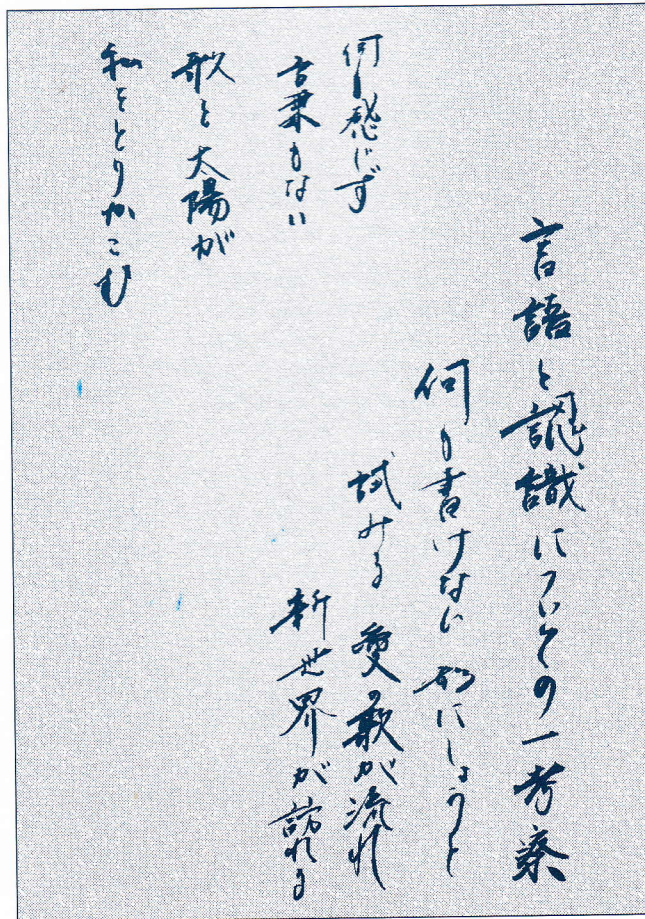 言語と認識についての一考察
何も書けない 砂にしようと
試みる 愛の歌が流れ
新世界が訪れる
何も感じず
言葉もない
歌と太陽が
私をとりかこむ